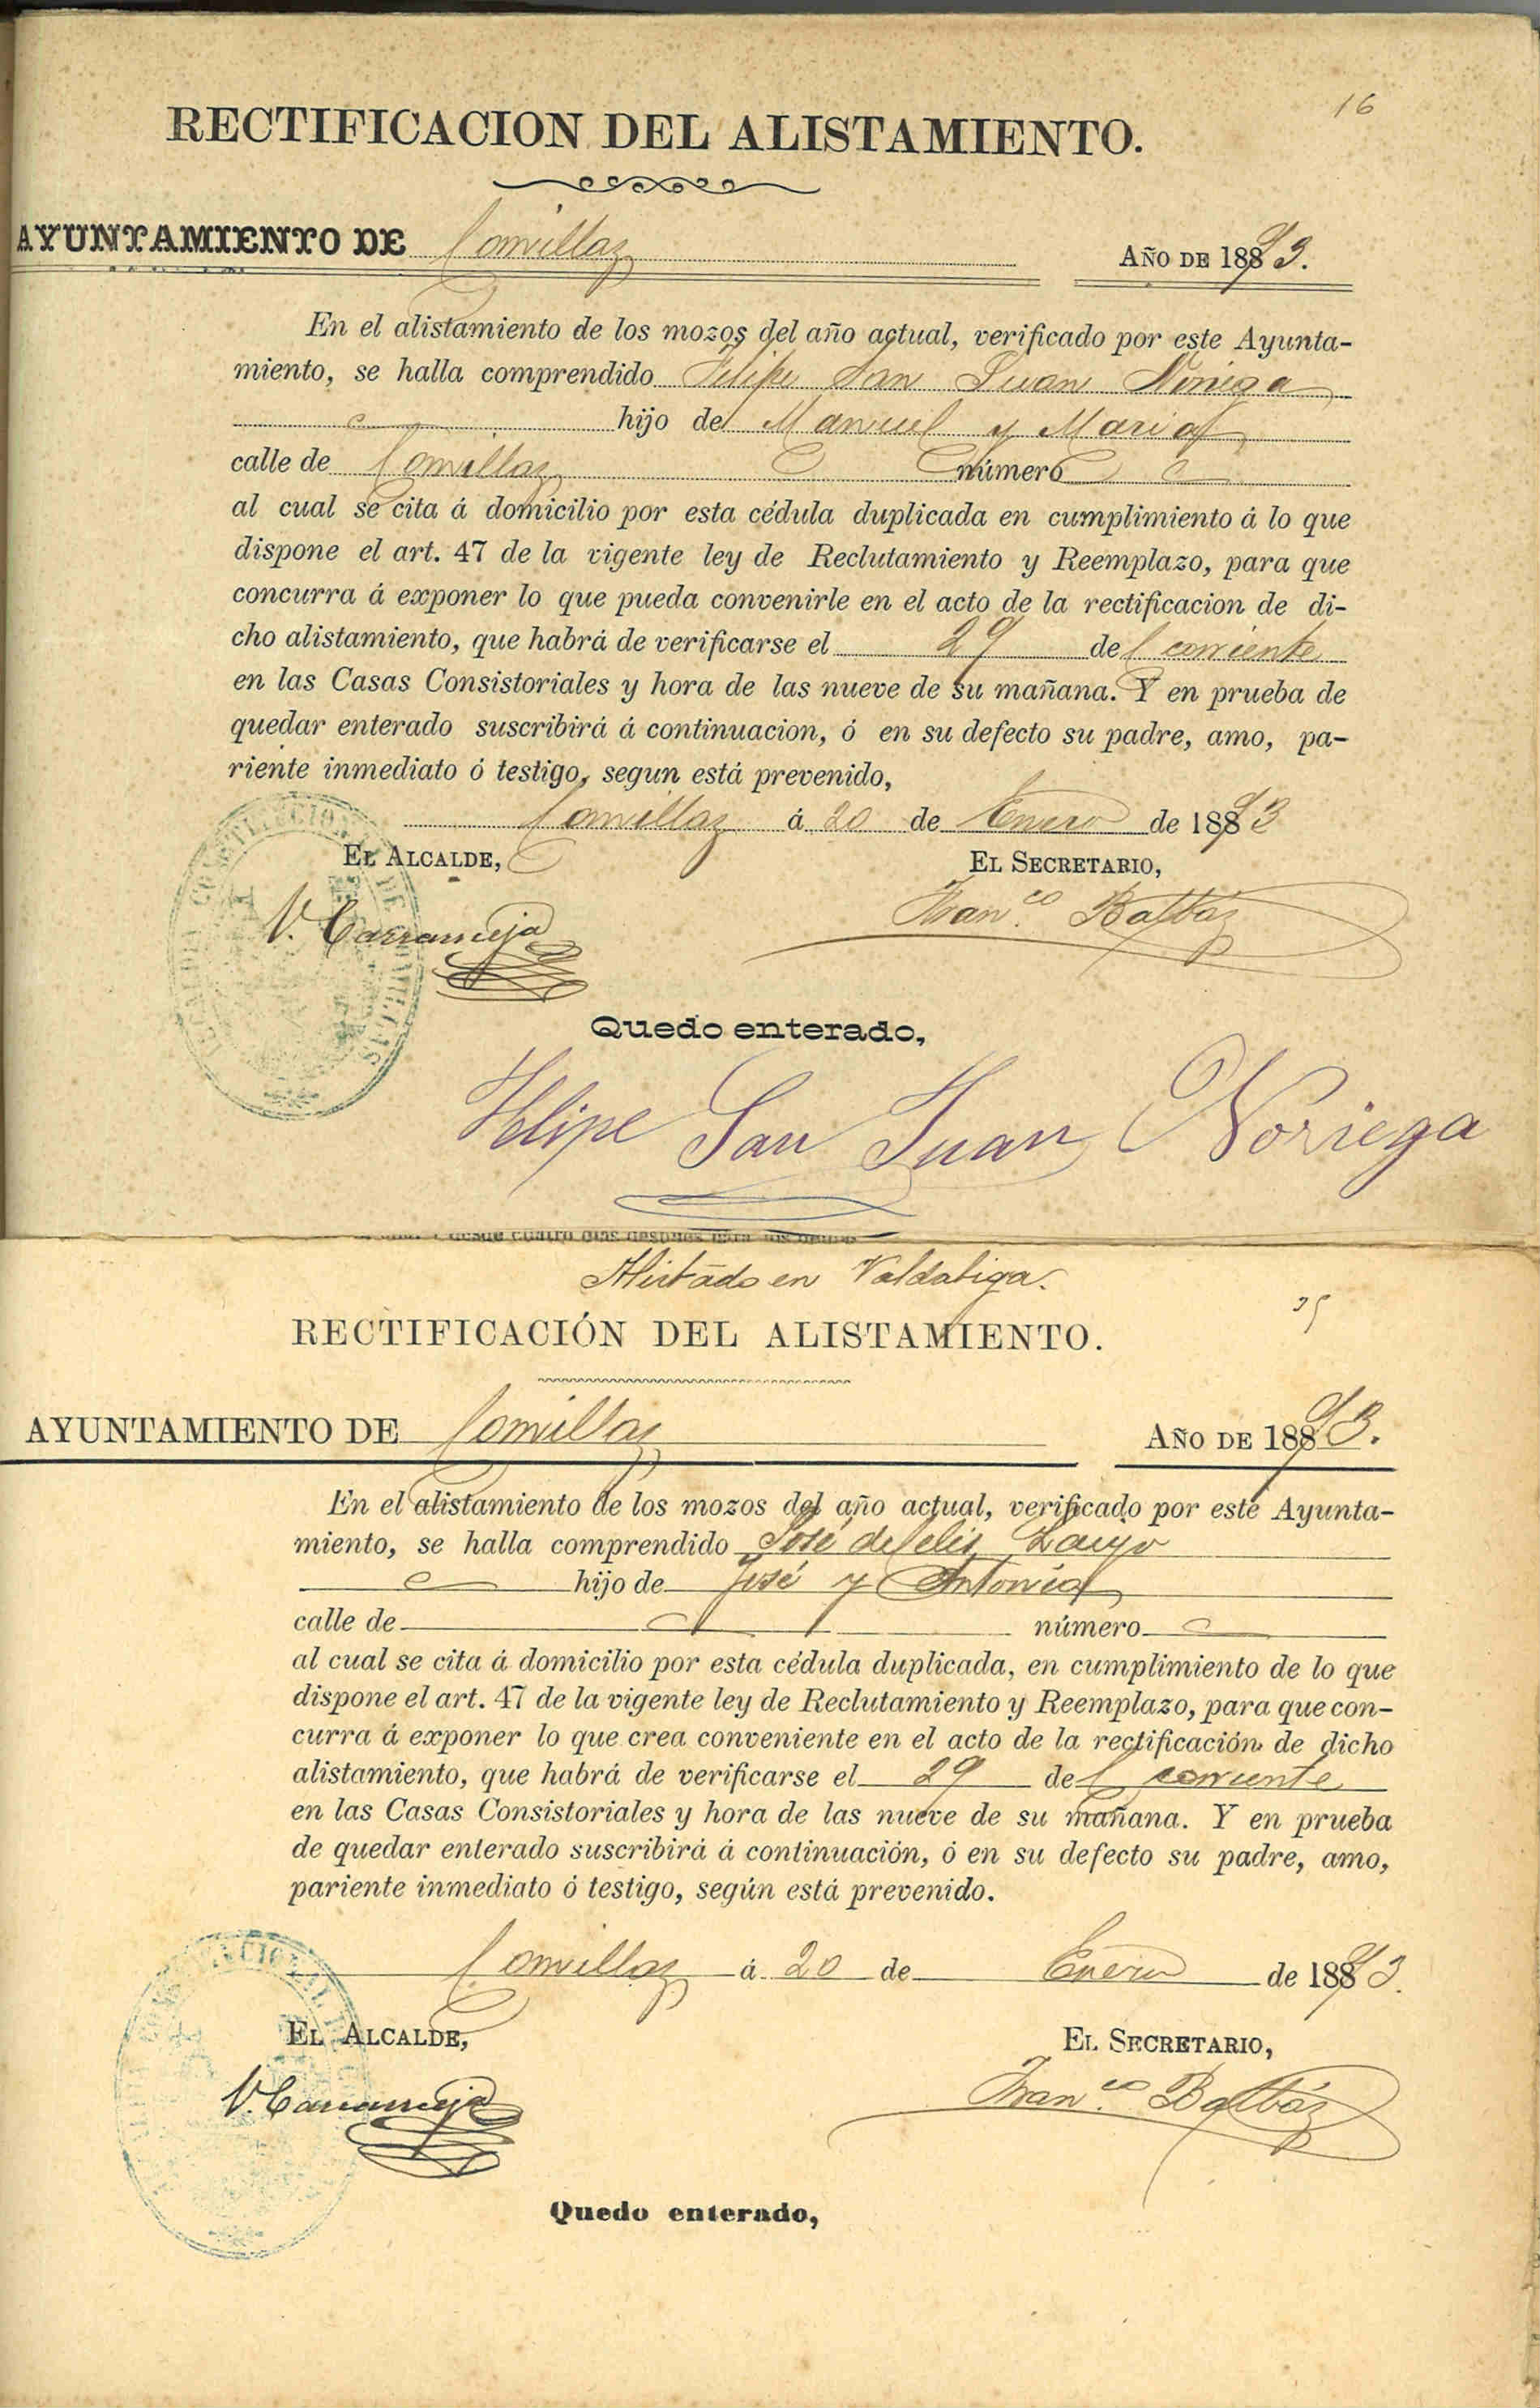 16
RECTIFICACION DEL ALISTAMIENTO.
AYUNTAMIENTO DE Comillas AÑO DE 1893.
En el alistamiento de los mozos del año actual, verificado por este Ayunta-
miento, se halla comprendido Felipe San Juan Noriega
hijo de Manuel y Maria
calle de Comillas número
al cual se cita á domicilio por esta cédula duplicada en cumplimiento á lo que
dispone el art. 47 de la vigente ley de Reclutamiento y Reemplazo, para que
concurra á exponer lo que pueda convenirle en el acto de la rectificacion de di-
cho alistamiento, que habrá de verificarse el 29 del corriente
en las Casas Consistoriales y hora de las nueve de su mañana. Y en prueba de
quedar enterado suscribirá á continuacion, ó en su defecto su padre, amo, pa-
riente inmediato ó testigo, segun está prevenido,
Comillas á 20 de Enero de 1893
EL ALCALDE, EL SECRETARIO,
V. Carranceja Fran.co Balbás
Quedo enterado,
Felipe San Juan Noriega
Alistado en Valdaliga.
35
RECTIFICACIÓN DEL ALISTAMIENTO.
AYUNTAMIENTO DE Comillas AÑO DE 1893.
En el alistamiento de los mozos del año actual, verificado por este Ayunta-
miento, se halla comprendido José de Celis
hijo de José y Antonia
calle de número
al cual se cita á domicilio por esta cédula duplicada, en cumplimiento de lo que
dispone el art. 47 de la vigente ley de Reclutamiento y Reemplazo, para que con-
curra á exponer lo que crea conveniente en el acto de la rectificación de dicho
alistamiento, que habrá de verificarse el 29 del corriente
en las Casas Consistoriales y hora de las nueve de su mañana. Y en prueba
de quedar enterado suscribirá á continuación, ó en su defecto su padre, amo,
pariente inmediato ó testigo, según está prevenido.
Comillas á 20 de Enero de 1893.
EL ALCALDE, EL SECRETARIO,
V. Carranceja Fran.co Balbás
Quedo enterado,